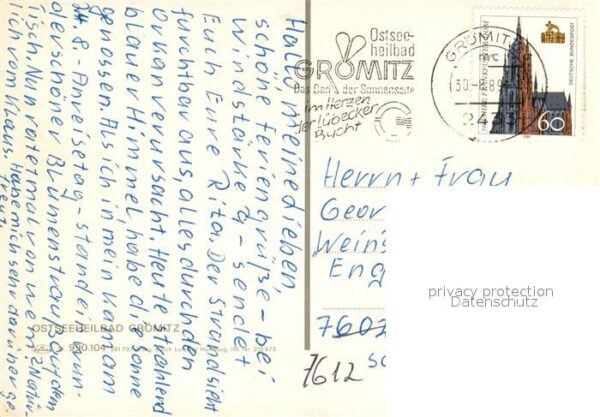 Hallo meine Lieben
schöne Feriengrüße - bei
Windstärke 9 - sendet
Euch Eure Rita. Der Strand sieht
furchtbar aus, alles durch den
Orkan verursacht. Heute strahlend
blauer Himmel habe die Sonne
genossen. Als ich in mein Kam am
24.8 - Anreisetag - stand ein wun-
derschöner Blumenstrauß auf dem
Tisch. Nun ratet mal von wem? Natür-
lich von Klaus. Habe mich sehr darüber ge-
freut
OSTSEEHEILBAD GRÖMITZ
930.104
Ostsee-
heilbad
GRÖMITZ
Das Bad an der Sonnenseite
im Herzen
der Lübecker
Bucht
GRÖMITZ
30.-8.89
60
DEUTSCHE BUNDESPOST
Herrn + Frau
Geor
Weins
Eng
7602
7612
privacy protection
Datenschutz